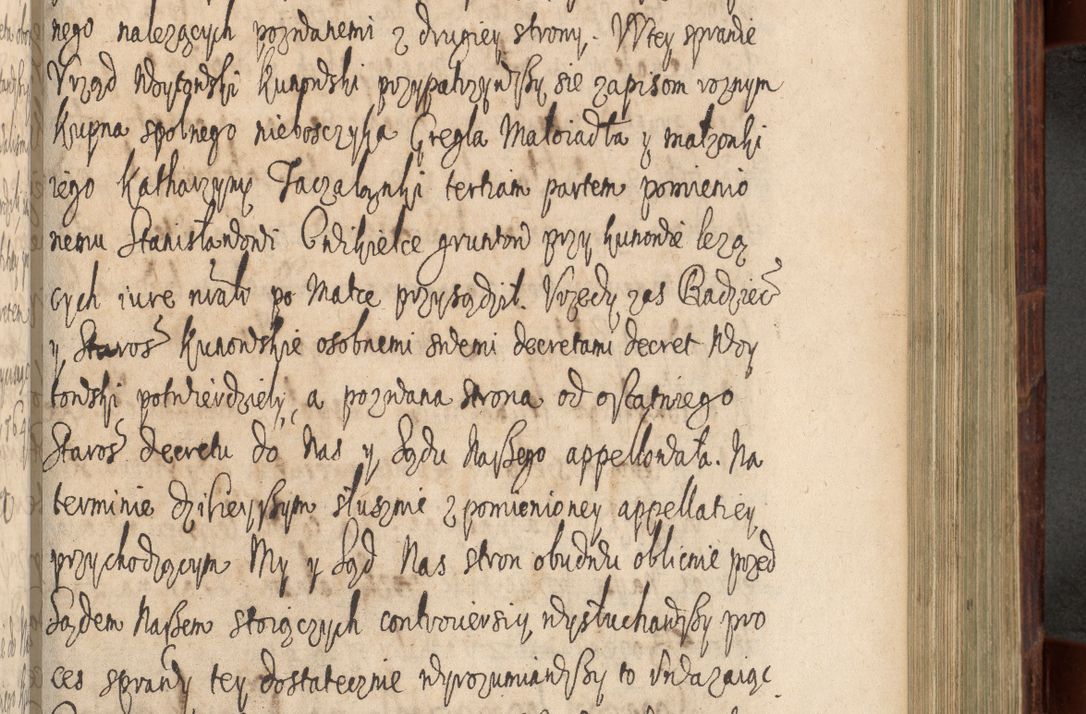 nego nalezących pozwanemi z drugiey strony. W tey sprawie
Vrząd Woytowski Kunowski przypatrzywßy się zapisom roznym
Kupna spolnego nieboszczyka Gregla Małoiadła y małzonki
iego Katharzyny tertiam partem pomienio
nemu Stanisławowi gruntow przy Kunowie lezą
cych iure po Matce przysądził. Vrzędy zas Radziec
y Staros Kunowskie osobnemi swemi decretami decret Woy
towski potwierdzieli, a pozwana strona od ostatniego
Staros decretu do Nas y Sądu Naßego appellowała. Na
terminie dzisieyßym słusznie z pomienioney appellatiey
przychodzącym My y Sąd Nas stron obudwu oblicnie przed
Sądem Naßem stoiączych controwersiy wysłuchawßy pro
ces sprawy tey dostatecznie wyrozumiawßy to vwazaiąc